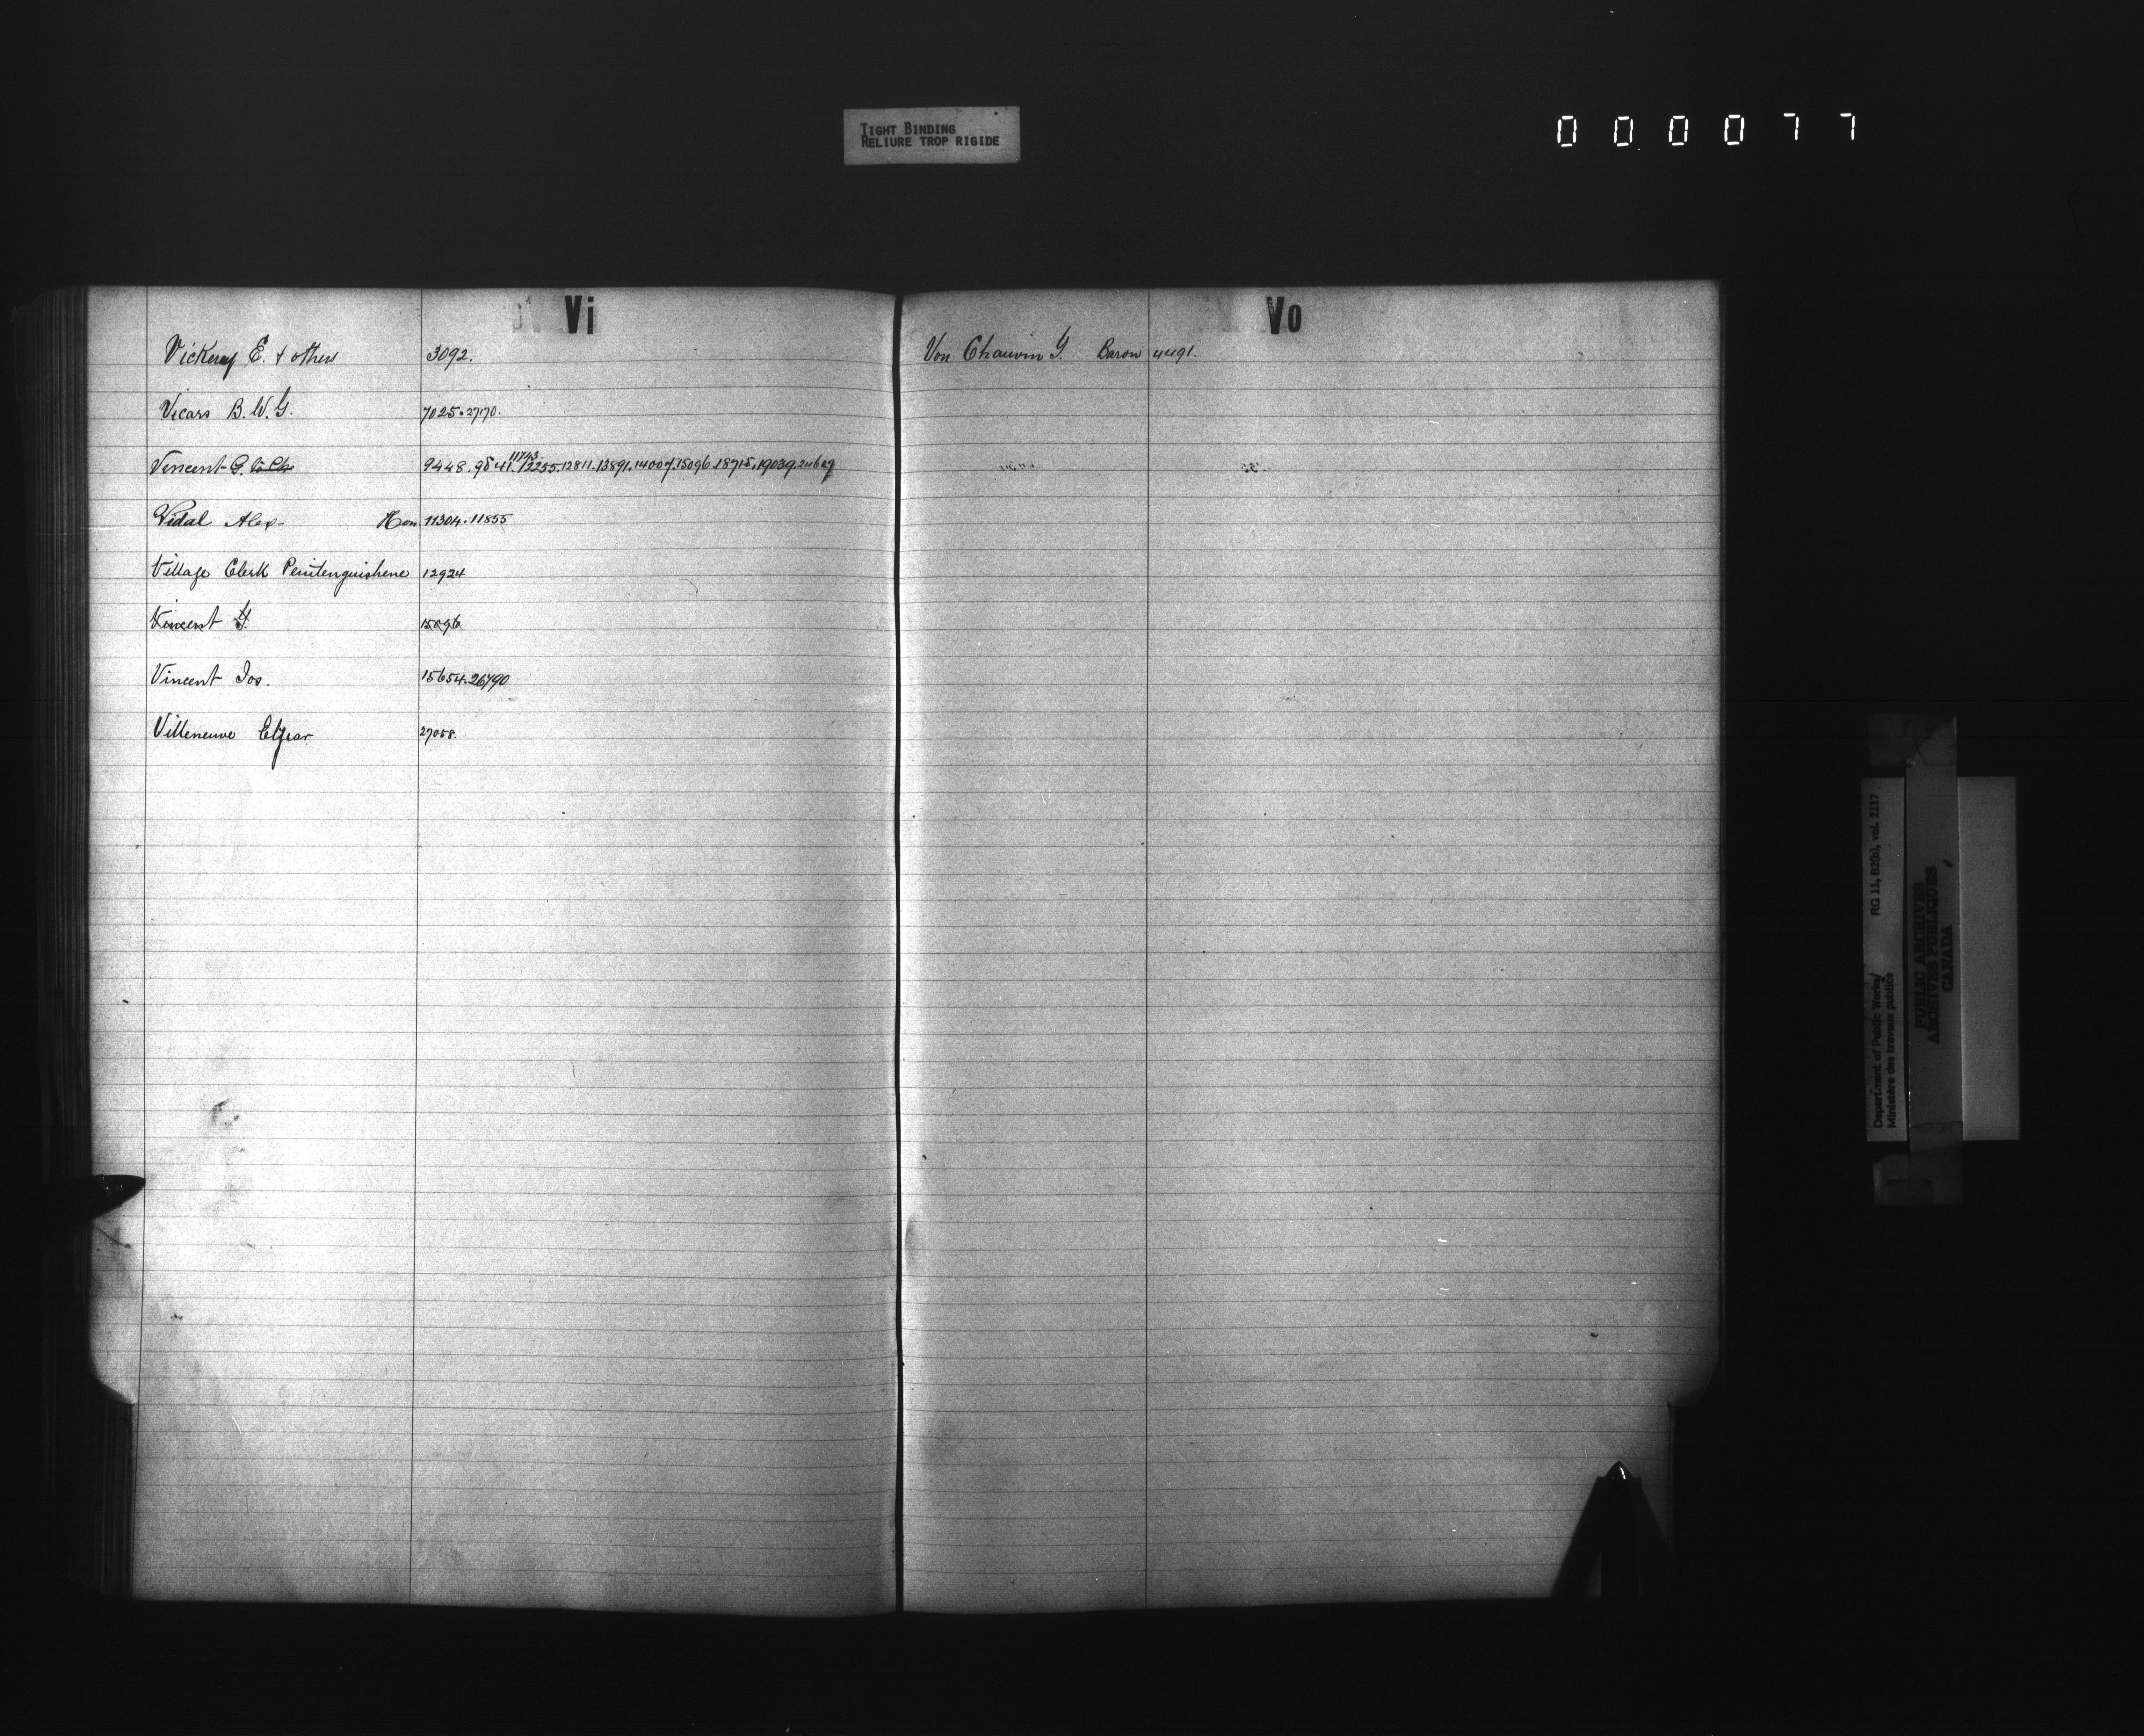 TIGHT BINDING
RELIURE TROP RIGIDE
000077
Vi
Vickery E. & others 3092.
Vicars B. W. G. 7025. 27170.
Vincent G. 9448. 9541. 11743. 12255. 12811. 13891. 14007. 15096. 18715. 19039. 24689
Vidal Alex- Hon 11304. 11855
Village Clerk Penetenguishene 12924
Vincent G. 15096
Vincent Jos. 15654. 26790
Villeneuve Elzear 27058.
Vo
Von Chauvin G. Baron 4491.
Department of Public Works/ RG 11, B2(b), vol. 2117
Ministère des travaux publics
PUBLIC ARCHIVES
ARCHIVES PUBLIQUES
CANADA